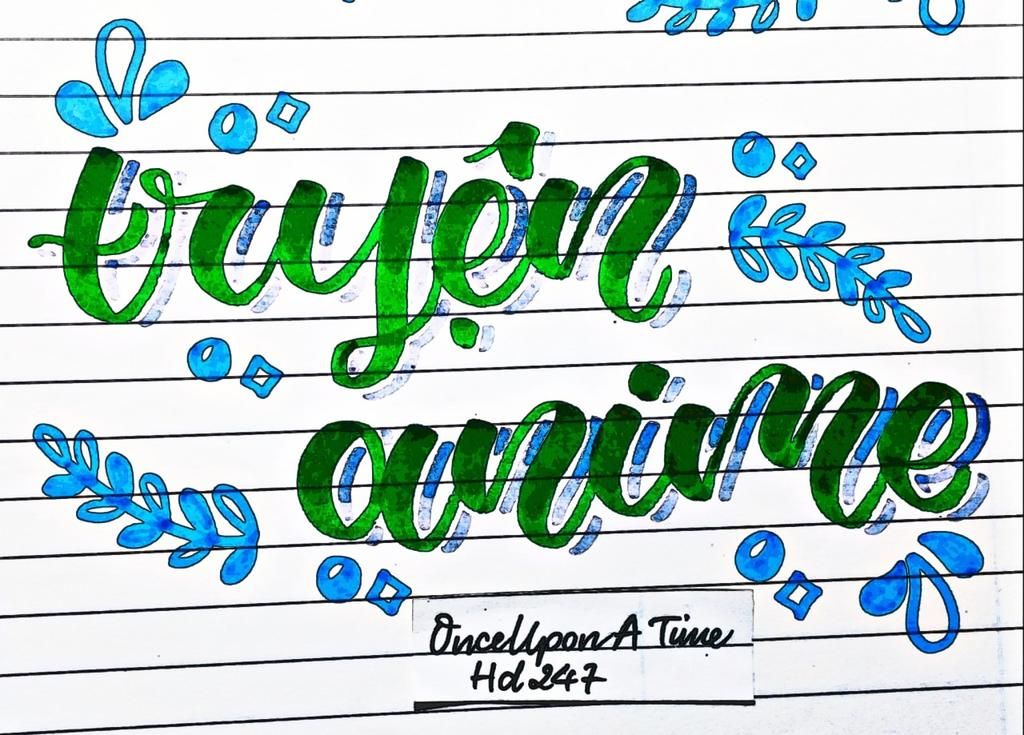 truyện
anime
OnceUponA Time
Hd247